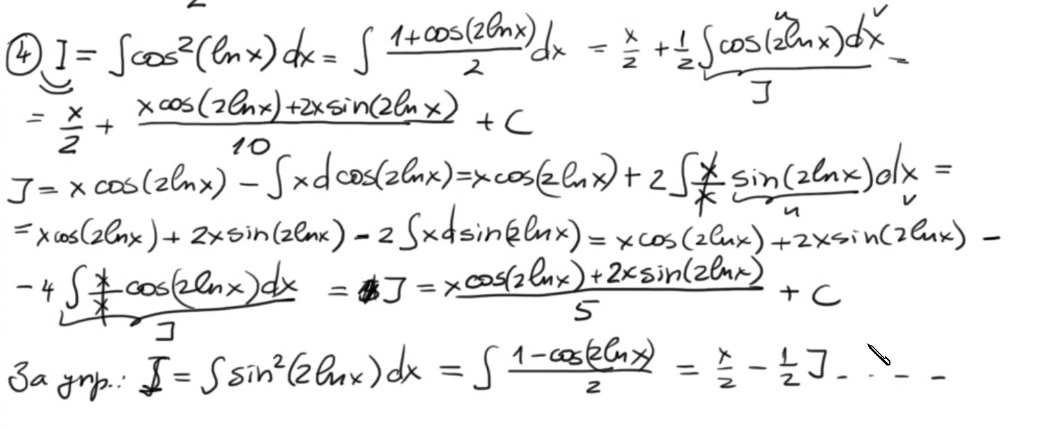 ④ I = ∫cos²(ln x) dx = ∫ (1+cos(2ln x))/2 dx = x/2 + 1/2 ∫cos(2ln x)dx =
u v
J
= x/2 + (x cos(2ln x)+2x sin(2ln x))/10 + C
J = x cos(2ln x) − ∫x d cos(2ln x) = x cos(2ln x) + 2∫ x/x sin(2ln x)dx =
u v
= x cos(2ln x) + 2x sin(2ln x) − 2∫x d sin(2ln x) = x cos(2ln x) + 2x sin(2ln x) −
− 4∫ x/x cos(2ln x)dx = J = (x cos(2ln x)+2x sin(2ln x))/5 + C
J
За упр.: I = ∫sin²(2ln x)dx = ∫ (1−cos(2ln x))/2 = x/2 − 1/2 J - - - -